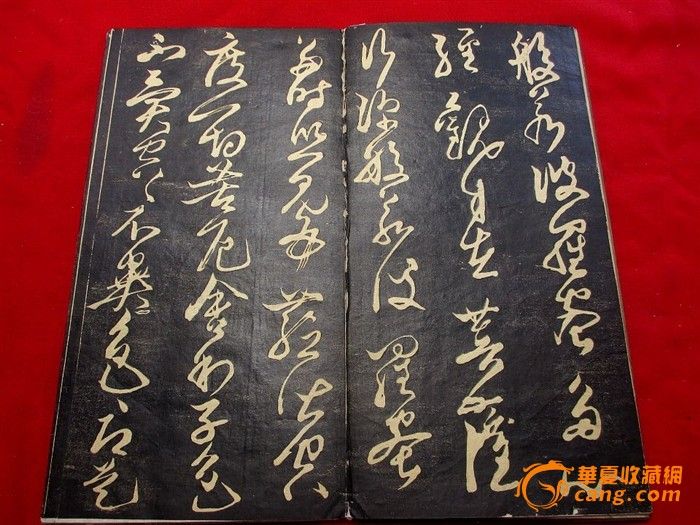 般若波羅蜜多心
經觀自在菩薩
行深般若波羅蜜
多時照見五蘊皆空
度一切苦厄舍利子色
不異空〻不異色〻即是
華夏收藏網
cang.com